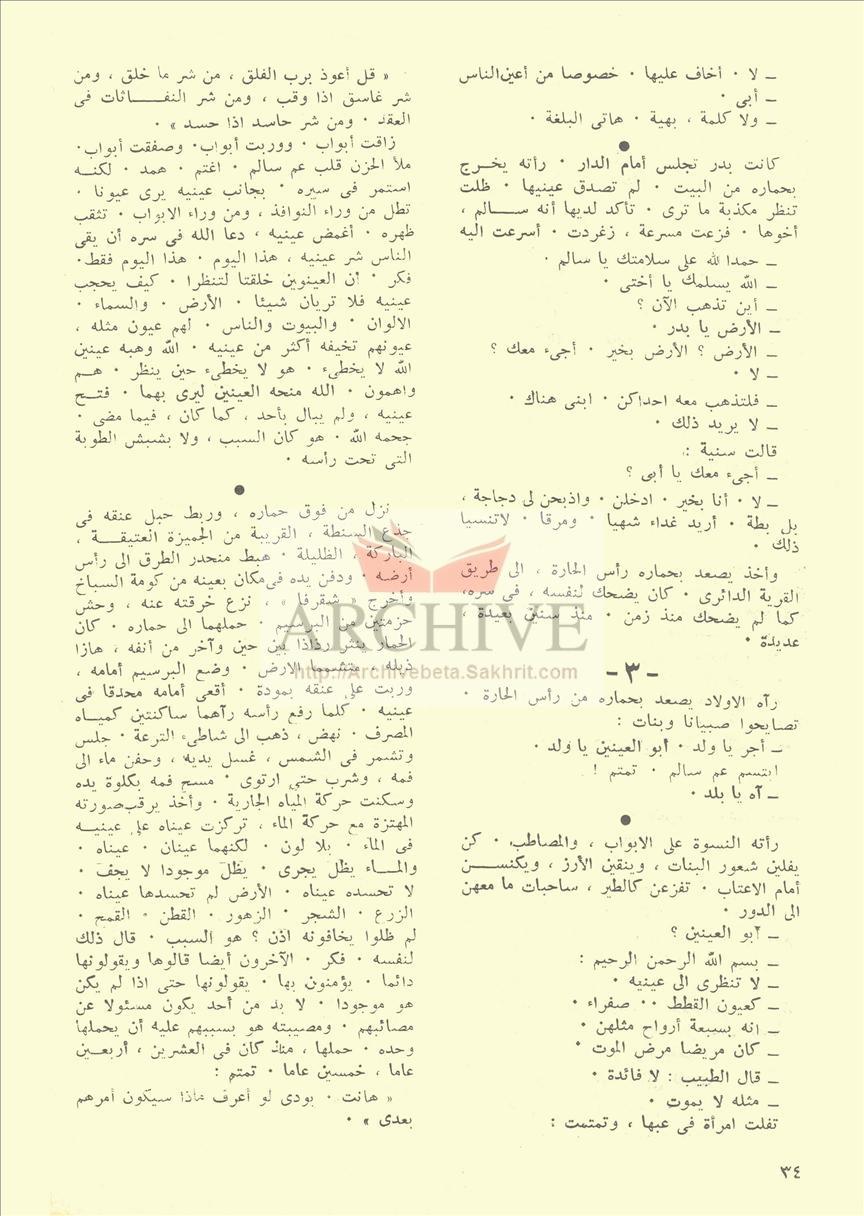 ـ لا ٠ أخاف عليها ٠ خصوصا من أعين الناس
ـ أبى ٠
ـ ولا كلمة ، بهية ٠ هاتى البلغة ٠
●
كانت بدر تجلس أمام الدار ٠ رأته يخــرج
بحماره من البيت ٠ لم تصدق عينيها ٠ ظلت
تنظر مكذبة ما ترى ٠ تأكد لديها أنه ســـالم ،
أخوها ٠ فزعت مسرعة ، زغردت ٠ أسرعت اليه
ـ حمدا لله على سلامتك يا سالم ٠
ـ الله يسلمك يا أختى ٠
ـ أين تذهب الآن ؟
ـ الأرض يا بدر ٠
ـ الأرض ؟ الأرض بخير ٠ أجىء معك ؟
ـ لا ٠
ـ فلتذهب معه احداكن ٠ ابنى هناك ٠
ـ لا يريد ذلك ٠
قالت سنية :
ـ أجىء معك يا أبى ؟
ـ لا ٠ أنا بخير ٠ ادخلن ٠ واذبحن لى دجاجة ،
بل بطة ٠ أريد غداء شهيا ٠ ومرقا ٠ لاتنسيا
ذلك ٠
وأخذ يصعد بحماره رأس الحارة ، الى طريق
القرية الدائرى ٠ كان يضحك لنفسه ، فى سره،
كما لم يضحك منذ زمن ٠ منذ سنين بعيدة ،
عديدة ٠
ـ ٣ ـ
رآه الاولاد يصعد بحماره من رأس الحارة ٠
تصايحوا صبيانا وبنات :
ـ أجر يا ولد ٠ أبو العينين يا ولد ٠
ابتسم عم سالم ٠ تمتم !
ـ آه يا بلد ٠
●
رأته النسوة على الابواب ، والمصاطب ٠ كن
يفلين شعور البنات ، وينقين الأرز ، ويكنســـن
أمام الاعتاب ٠ تفزعن كالطير ، ساحبات ما معهن
الى الدور ٠
ـ أبو العينين ؟
ـ بسم الله الرحمن الرحيم :
ـ لا تنظرى الى عينيه ٠
ـ كعيون القطط ٠٠ صفراء ٠
ـ انه بسبعة أرواح مثلهن ٠
ـ كان مريضا مرض الموت ٠
ـ قال الطبيب : لا فائدة ٠
ـ مثله لا يموت ٠
تفلت امرأة فى عبها ، وتمتمت :
« قل أعوذ برب الفلق ، من شر ما خلق ، ومن
شر غاسق اذا وقب ، ومن شر النفـــــاثات فى
العقد ٠ ومن شر حاسد اذا حسد » ٠
زاقت أبواب ٠ ووربت أبواب٠ وصفقت أبواب٠
ملأ الحزن قلب عم سالم ٠ اغتم ٠ همد ٠ لكنــه
استمر فى سيره ٠ بجانب عينيه يرى عيونا ٠
تطل من وراء النوافذ ، ومن وراء الابواب ٠ تثقب
ظهره ٠ أغمض عينيه ، دعا الله فى سره أن يقى
الناس شر عينيه ، هذا اليوم ٠ هذا اليوم فقط٠
فكر ٠ أن العينوين خلقتا لتنظرا ٠ كيف يحجب
عينيه فلا تريان شيئا ٠ الأرض ٠ والسماء ٠
الالوان ٠ والبيوت والناس ٠ لهم عيون مثله ،
عيونهم تخيفه أكثر من عينيه ٠ الله وهبه عينين
الله لا يخطىء ٠ هو لا يخطىء حين ينظر ٠ هــم
واهمون ٠ الله منحه العينين ليرى بهما ٠ فتــح
عينيه ، ولم يبال بأحد ، كما كان ، فيما مضى ٠
جحمه الله ٠ هو كان السبب ، ولا بشبش الطوبة
التى تحت رأسه ٠
●
نزل من فوق حماره ، وربط حبل عنقه فى
جدع السنطة ، القريبة من الجميزة العتيقــــة ،
الباركة ، الظليلة ٠ هبط منحدر الطرق الى رأس
أرضه ٠ ودفن يده فى مكان بعينه من كومة السباخ
وأخرج « شقرفا » ، نزع خرقته عنه ، وحش
حزمتين من البرسيم ٠ حملهما الى حماره ٠ كان
الحمار ينثر رذاذا بين حين وآخر من أنفه ، هازا
ذيله ، متشمما الارض ٠ وضع البرسيم أمامه ،
وربت على عنقه بمودة ٠ أقعى أمامه محدقا فى
عينيه ٠ كلما رفع رأسه رآهما ساكنتين كميــاه
المصرف ٠ نهض ، ذهب الى شاطىء الترعة ٠ جلس
وتشمر فى الشمس ، غسل يديه ، وحفن ماء الى
فمه ، وشرب حتى ارتوى ٠ مسح فمه بكلوة يده
وسكنت حركة المياه الجارية ٠ وأخذ يرقب صورته
المهتزة مع حركة الماء ، تركزت عيناه على عينيــه
فى الماء ٠ بلا لون ٠ لكنهما عينان ٠ عيناه ٠
والمـــاء يظل يجرى ٠ يظل موجودا لا يجف ٠
لا تحسده عيناه ٠ الأرض لم تحسدها عيناه ٠
الزرع ٠ الشجر ٠ الزهور ٠ القطن ٠ القمح ٠
لم ظلوا يخافونه اذن ؟ هو السبب ٠ قال ذلك
لنفسه ٠ فكر ٠ الآخرون أيضا قالوها ويقولونها
دائما ٠ يؤمنون بها ٠ يقولونها حتى اذا لم يكن
هو موجودا ٠ لا بد من أحد يكون مسئولا عن
مصائبهم ٠ ومصيبته هو بسببهم عليه أن يحملها
وحده ٠ حملها ، منذ كان فى العشرين ، أربعــين
عاما ، خمسين عاما ٠ تمتم :
« هانت ٠ بودى لو أعرف ماذا سيكون أمرهم
بعدى » ٠
ARCHIVE
http://Archivebeta.Sakhrit.com
٣٤